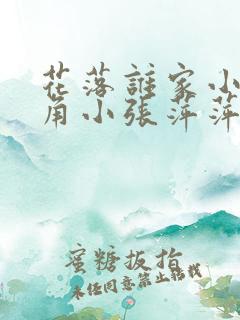 花落誰家小
角小張萍萍
蜜糖扳指
未经同意禁止转载